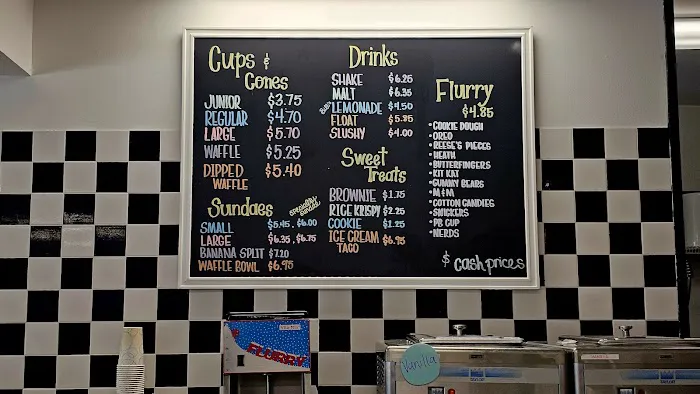 Cups &
Cones
JUNIOR $3.75
REGULAR $4.70
LARGE $5.70
WAFFLE $5.25
DIPPED $5.40
WAFFLE
Sundaes
SMALL $5.45, $6.00
LARGE $6.35, $6.75
BANANA SPLIT $7.20
WAFFLE BOWL $6.95
Drinks
SHAKE $6.25
MALT $6.35
LEMONADE $4.50
FLOAT $5.85
SLUSHY $4.00
Sweet
Treats
BROWNIE $1.75
RICE KRISPY $2.25
COOKIE $1.25
ICE CREAM $6.95
TACO
Flurry
$4.85
• COOKIE DOUGH
• OREO
• REESE'S PIECES
• HEATH
• BUTTERFINGERS
• KIT KAT
• GUMMY BEARS
• M&M
• COTTON CANDIES
• SNICKERS
• PB CUP
• NERDS
$ cash prices
FLURRY
Vanilla
TAYLOR